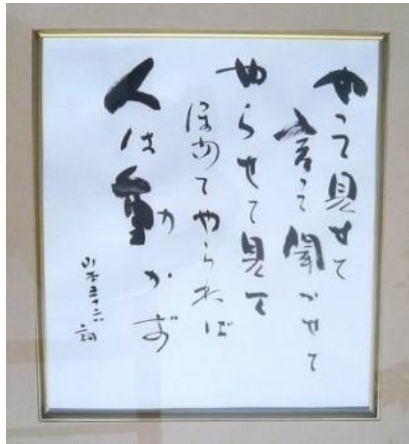 やって見せて
言って聞かせて
やらせて見て
ほめてやらねば
人は動かず
山本五十六 詞